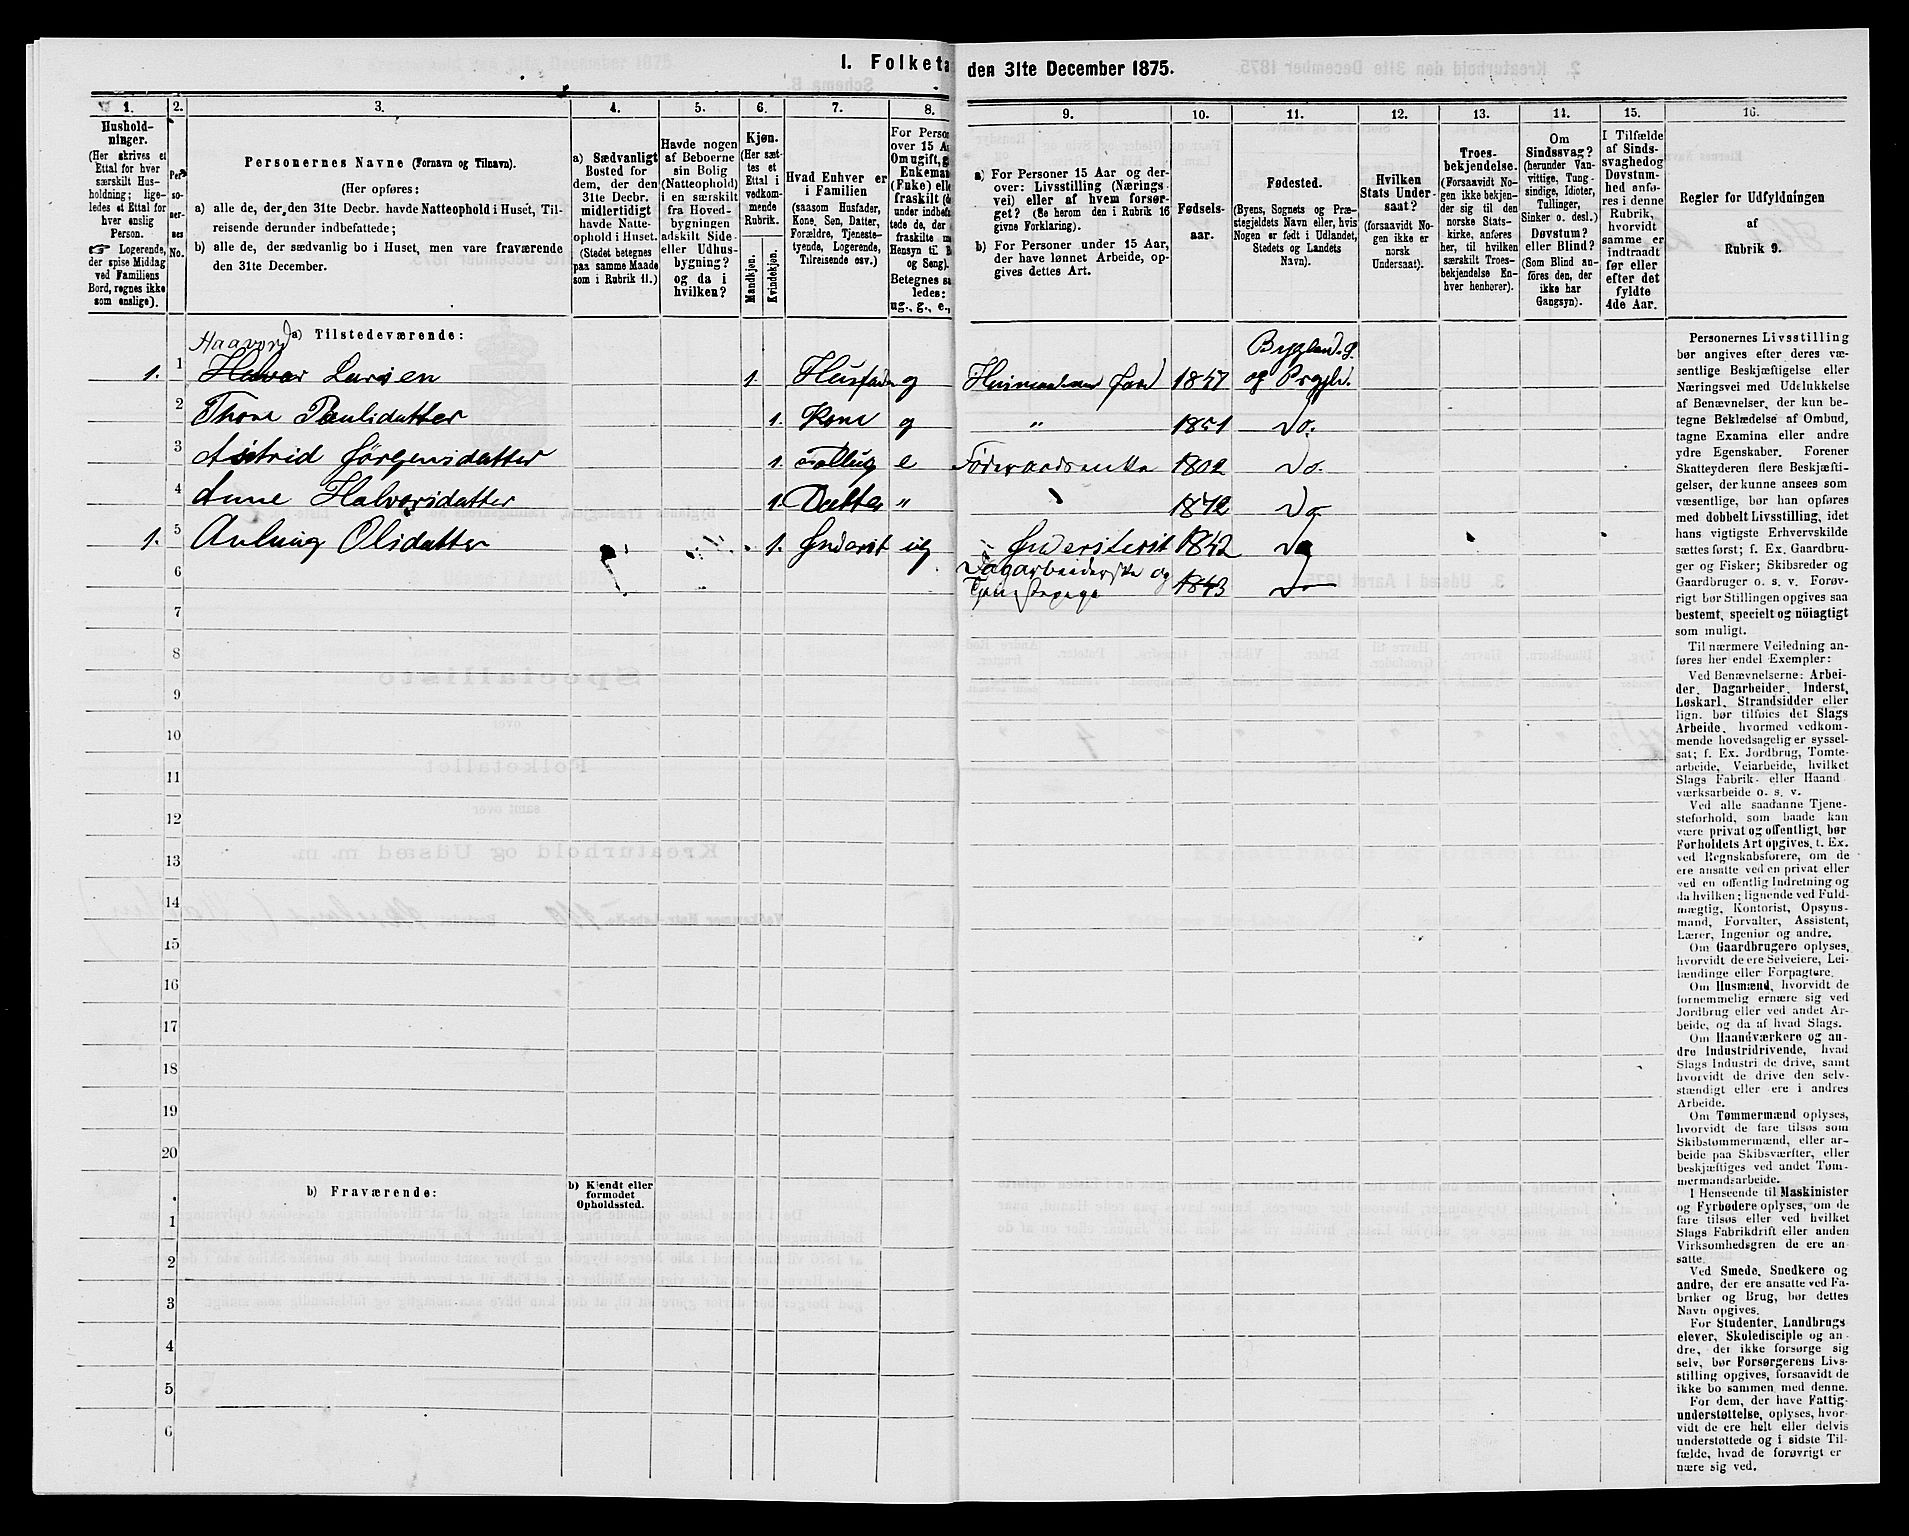 I. Folketa den 31te December 1875.
1.
Hushold-
ninger.
(Her skrives et
Ettal for hver
særskilt Hus-
holdning; lige-
ledes et Ettal for
hver enslig
Person.
☞ Logerende,
der spise Middag
ved Familiens
Bord, regnes ikke
som enslige).
2.
Per-
so-
ner-
nes
No.
3.
Personernes Navne (Fornavn og Tilnavn).
(Her opføres:
a) alle de, der den 31te Decbr. havde Natteophold i Huset, Til-
reisende derunder indbefattede;
b) alle de, der sædvanlig bo i Huset, men vare fraværende
den 31te December.
4.
a) Sædvanligt
Bosted for
dem, der den
31te Decbr.
midlertidigt
havde Natte-
ophold i Huset.
(Stedet betegnes
paa samme Maade
som i Rubrik 11.)
5.
Havde nogen
af Beboerne
sin Bolig
(Natteophold)
i en særskilt
fra Hoved-
bygningen
adskilt Side-
eller Udhus-
bygning?
og da i
hvilken?
6.
Kjøn.
(Her sæt-
tes et
Ettal i
vedkom-
mende
Rubrik.
Mandkjøn.
Kvindekjøn.
7.
Hvad Enhver er
i Familien
(saasom Husfader,
Kone, Søn, Datter,
Forældre, Tjeneste-
tyende, Logerende,
Tilreisende osv.)
8.
For Person
over 15 Aa
Om ugift, g
Enkema
(Fuke) elle
fraskilt (d
under indbef
tede de, der
fraskilte m
Hensyn til B
og Seng).
Betegnes sa
ledes:
ug., g., e.,
9.
a) For Personer 15 Aar og der-
over: Livsstilling (Nærings-
vei) eller af hvem forsør-
get? (Se herom den i Rubrik 16
givne Forklaring).
b) For Personer under 15 Aar,
der have lønnet Arbeide, op-
gives dettes Art.
10.
Fødsels-
aar.
11.
Fødested.
(Byens, Sognets og Præ-
stegjeldets Navn eller, hvis
Nogen er født i Udlandet,
Stedets og Landets
Navn).
12.
Hvilken
Stats Under-
saat?
(forsaavidt No-
gen ikke er
norsk
Undersaat).
13.
Troes-
bekjendelse.
(Forsaavidt No-
gen ikke bekjen-
der sig til den
norske Stats-
kirke, anføres
her, til hvilken
særskilt Troes-
bekjendelse En-
hver henhører).
14.
Om
Sindssvag?
(herunder Van-
vittige, Tung-
sindige, Idioter,
Tullinger,
Sinker o. desl.)
Døvstum?
eller Blind?
(Som Blind an-
føres den, der
ikke har
Gangsyn).
15.
I Tilfælde
af Sinds-
svaghed og
Døvstum-
hed anfø-
res i denne
Rubrik,
hvorvidt
samme er
indtraadt
før eller
efter det
fyldte
4de Aar.
16.
Regler for Udfyldningen
af
Rubrik 9.
a) Tilstedeværende:
Haavord
1. 1 Halvor Larsen 1. Husfader g Husmand med Jord 1847 Bygland S. og Prgjld.
2 Thone Paulsdatter 1. Kone g " 1851 Do.
3 Astrid Jørgensdatter 1. e Føderaadsenke 1802 Do.
4 Anne Halvorsdatter 1. Datter " " 1872 Do
1. 5 Aslaug Olsdatter 1. Inderst ug Inderst 1842 Do
6 Dagarbeiderske og 1843
7
8
9
10
11
12
13
14
15
16
17
18
19
20
b) Fraværende:
b) Kjendt eller
formodet
Opholdssted.
1
2
3
4
5
6
Personernes Livsstilling
bør angives efter deres væ-
sentlige Beskjæftigelse eller
Næringsvei med Udelukkelse
af Benævnelser, der kun be-
tegne Beklædelse af Ombud,
tagne Examina eller andre
ydre Egenskaber. Forener
Skatteyderen flere Beskjæfti-
gelser, der kunne ansees som
væsentlige, bør han opføres
med dobbelt Livsstilling, idet
hans vigtigste Erhvervskilde
sættes først; f. Ex. Gaardbru-
ger og Fisker; Skibsreder og
Gaardbruger o. s. v. Forøv-
rigt bør Stillingen opgives saa
bestemt, specielt og nøiagtigt
som muligt.
Til nærmere Veiledning an-
føres her endel Exempler:
Ved Benævnelserne: Arbei-
der, Dagarbeider, Inderst,
Løskarl, Strandsidder eller
lign. bør tilføies det Slags
Arbeide, hvormed vedkom-
mende hovedsagelig er syssel-
sat; f. Ex. Jordbrug, Tomte-
arbeide, Veiarbeide, hvilket
Slags Fabrik- eller Haand-
værksarbeide o. s. v.
Ved alle saadanne Tjene-
steforhold, som baade kan
være privat og offentligt, bør
Forholdets Art opgives, f. Ex.
ved Regnskabsførere, om de
ere ansatte ved en privat eller
ved en offentlig Indretning og
da hvilken; lignende ved Fuld-
mægtig, Kontorist, Opsyns-
mand, Forvalter, Assistent,
Lærer, Ingeniør og andre.
Om Gaardbrugere oplyses,
hvorvidt de ere Selveiere, Lei-
lændinge eller Forpagtere.
Om Husmænd, hvorvidt de
fornemmelig ernære sig ved
Jordbrug eller ved andet Ar-
beide, og da af hvad Slags.
Om Haandværkere og an-
dre Industridrivende, hvad
Slags Industri de drive, samt
hvorvidt de drive den selv-
stændigt eller ere i andres
Arbeide.
Om Tømmermænd oplyses,
hvorvidt de fare tilsøs som
Skibstømmermænd, eller ar-
beide paa Skibsværfter, eller
beskjæftiges ved andet Tøm-
mermandsarbeide.
I Henseende til Maskinister
og Fyrbødere oplyses, om de
fare tilsøs eller ved hvilket
Slags Fabrikdrift eller anden
Virksomhedsgren de ere an-
satte.
Ved Smede, Snedkere og
andre, der ere ansatte ved Fa-
briker og Brug, bør dettes
Navn opgives.
For Studenter, Landbrugs-
elever, Skoledisciple og an-
dre, der ikke forsørge sig
selv, bør Forsørgerens Livs-
stilling opgives, forsaavidt de
ikke bo sammen med denne.
For dem, der have Fattig-
understøttelse, oplyses, hvor-
vidt de ere helt eller delvis
understøttede og i sidste Til-
fælde, hvad de forøvrigt er-
nære sig ved.